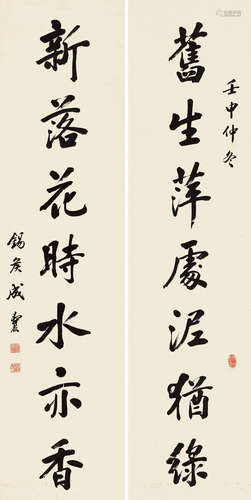 壬申仲冬
舊生萍處泥猶綠
新落花時水亦香
錫侯成